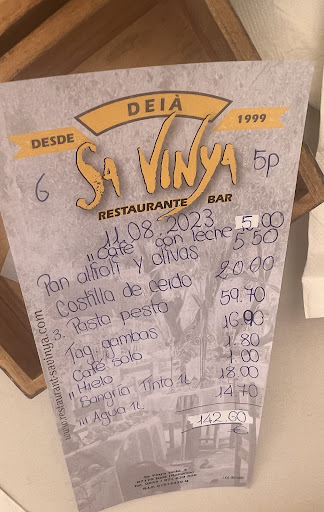 DEIÀ
DESDE 1999
SA VINYA
RESTAURANTE BAR
6 5p
11.08.2023
" café con leche 5.00
Pan allioli y olivas 5.50
Costilla de cerdo 20.00
3. Pasta pesto 59.70
Tag. gambas 16.90
Café solo 1.80
" Hielo 1.00
Sangría Tinto 1L 18.00
III Agua 1L 14.70
142.60
€
www.restaurant-savinya.com